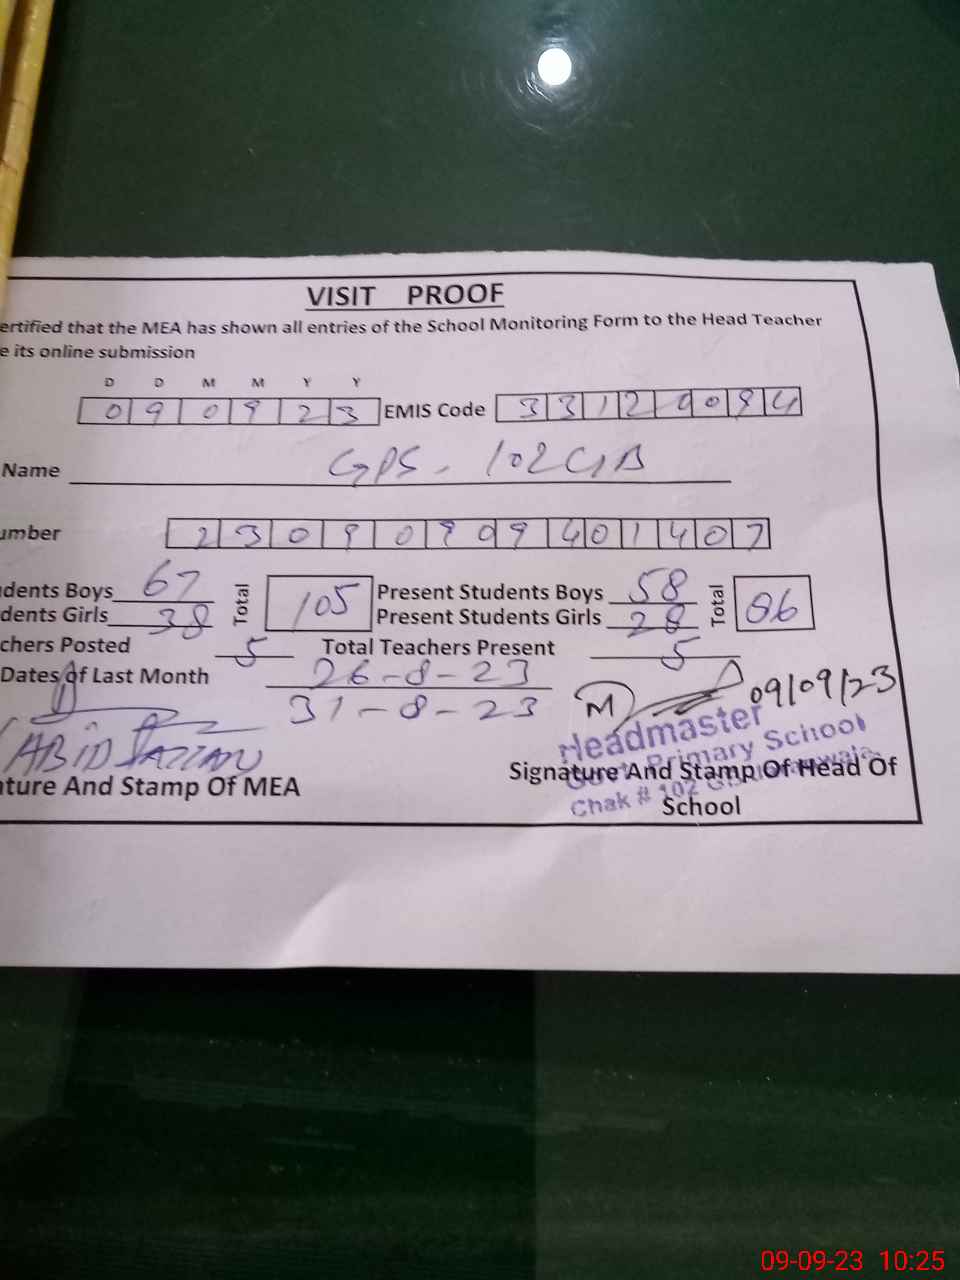 VISIT PROOF
ertified that the MEA has shown all entries of the School Monitoring Form to the Head Teacher
e its online submission
D D M M Y Y
0 9 0 9 2 3 EMIS Code 3 3 1 2 0 0 9 4
Name GPS - 102 GB
umber 2 3 0 9 0 9 0 9 4 0 1 4 0 7
dents Boys 67 Total 105 Present Students Boys 58 Total 86
dents Girls 38 Present Students Girls 28
chers Posted 5 Total Teachers Present 5
Dates of Last Month 26-8-23
31-8-23
09/09/23
ABID
Headmaster
Govt. Primary School
Chak # 102 GB
ture And Stamp Of MEA
Signature And Stamp Of Head Of
School
09-09-23 10:25